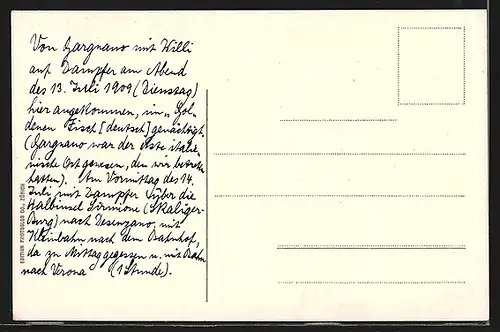 Von Gargnano mit Willi
auf Dampfer am Abend
des 13. Juli 1909 (Dienstag)
hier angekommen, im „Gol-
denen Fisch [deutsch] genächtigt.
(Gargnano war der erste italie-
nische Ort gewesen, den wir betreten
hatten). Am Vormittag des 14.
Juli mit Dampfer (über die
Halbinsel Sirmione (Skaliger-
Burg) nach Desenzano, mit
Kleinbahn nach dem Bahnhof,
da zu Mittag gegessen u. mit Bahn
nach Verona (1 Stunde).
EDITION PHOTOGLOB CO., ZÜRICH